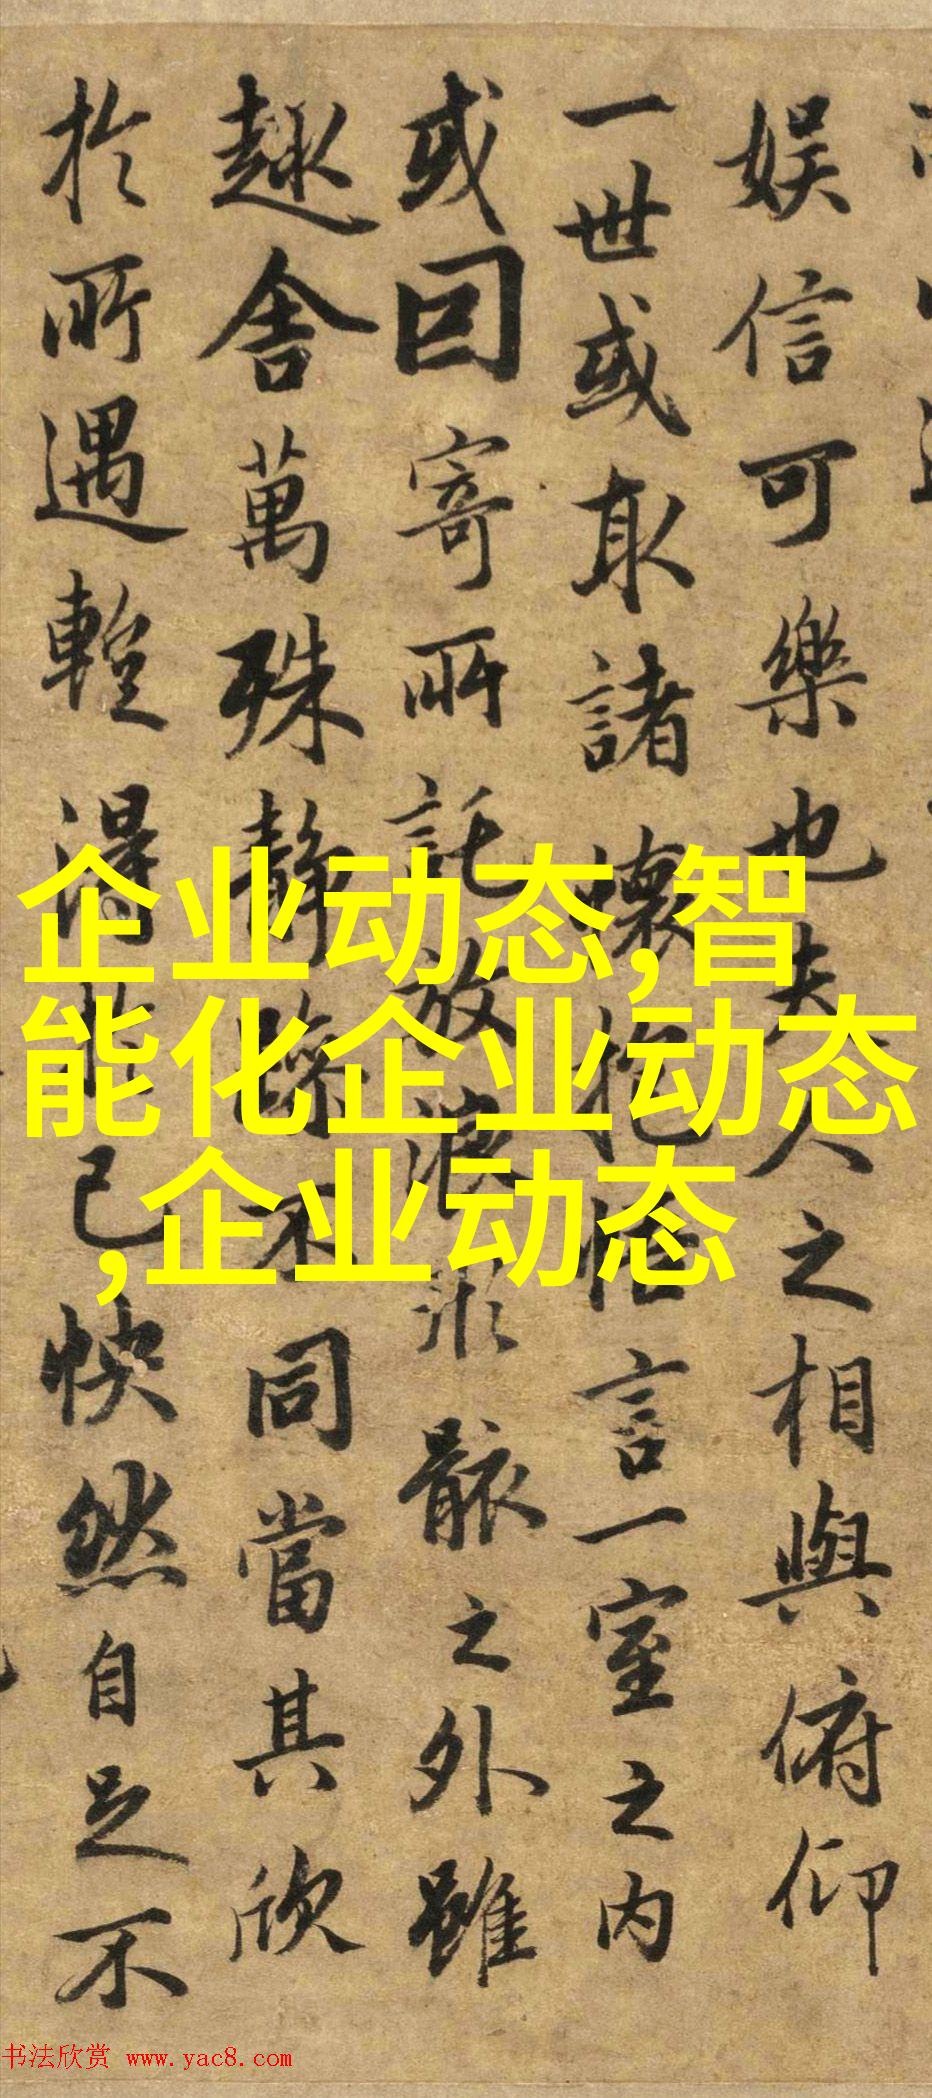 娱信可樂也夫人之相與俯仰
一世或取諸懷抱悟言一室之内
或因寄所託放浪形骸之外雖
趣舍萬殊静躁不同當其欣
於所遇得於己快然自足不
企业动态,智
能化企业动态
,企业动态
书法欣赏 www.yac8.com